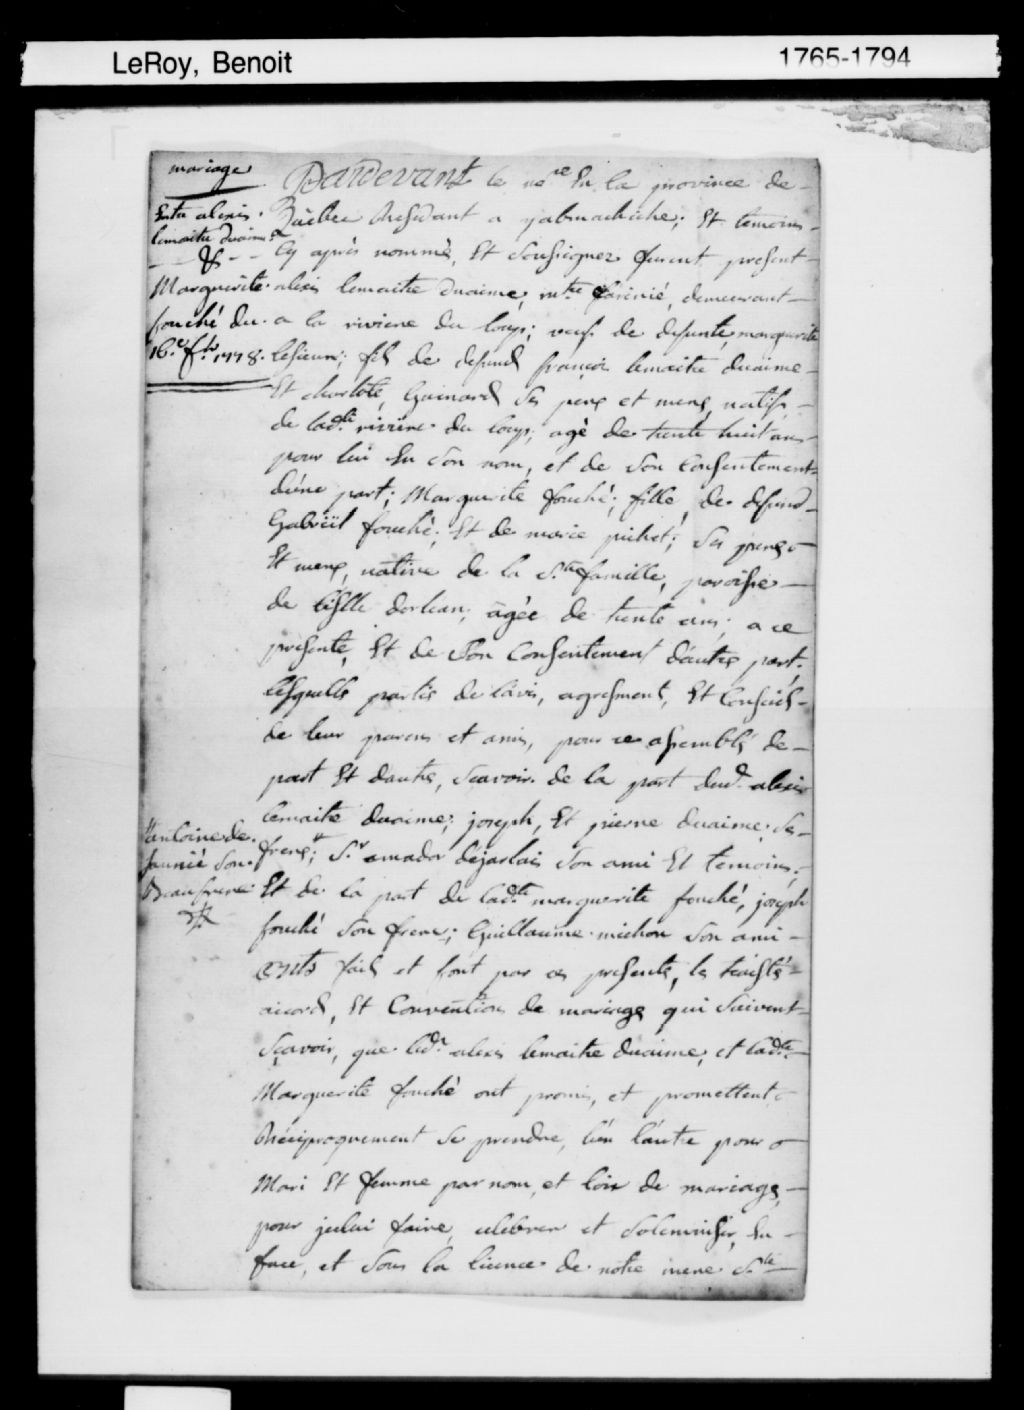 LeRoy, Benoit
1765-1794
mariage
Entre alexis
lemaitre duaime
&
Marguerite
fouché du
16.e f.r 1778.
Pardevant le no.re En la province de
Québec Residant a yabmachiche; Et temoins
Cy après nommés, Et Sousignez furent present
alexis lemaitre duaime, m.tre farinié, demeurant
a la riviere du loup; veuf de defunte marguerite
lesieur; fils de defund françoi lemaitre duaime
Et charlote, Guinard Ses pere et mere, natif,
de lad.te riviere du loup; agé de trente huit ans
pour lui En Son nom, et de Son Consentement
d'une part; Marguerite fouché; fille, de defund
Gabriël fouché; Et de marie pichet; Ses pere
Et mere, native de la S.te famille, paroisse
de lisle dorlean; âgée de trente ans; a ce
presente, Et de Son Consentement d'autre part;
lesquelle partis de l'avis, agrement, Et Conseil
de leur parens et amis, pour ce assemblé de
part Et dautre, Scavoir. de la part dud. alexis
lemaitre duaime; joseph, Et pierre duaime; Ses
frere; S.r amador déjarlais Son ami Et temoins;
antoine de
Son
Beaufrere
Et de la part de lad.te marguerite fouché, joseph
fouché Son frere; Guillaume michon Son ami
Onts fait et font par ces presente, les traité
acord, Et Conventions de mariage qui Suivent
Sçavoir, que led.t alexis lemaitre duaime, et lad.te
Marguerite fouché ont promis, et promettent
Réciproquement Se prendre, l'un l'autre pour
Mari Et femme par nom, et loix de mariage,
pour jcelui faire, celebrer et Solemniser, En
face, et Sous la licence de notre mere S.te